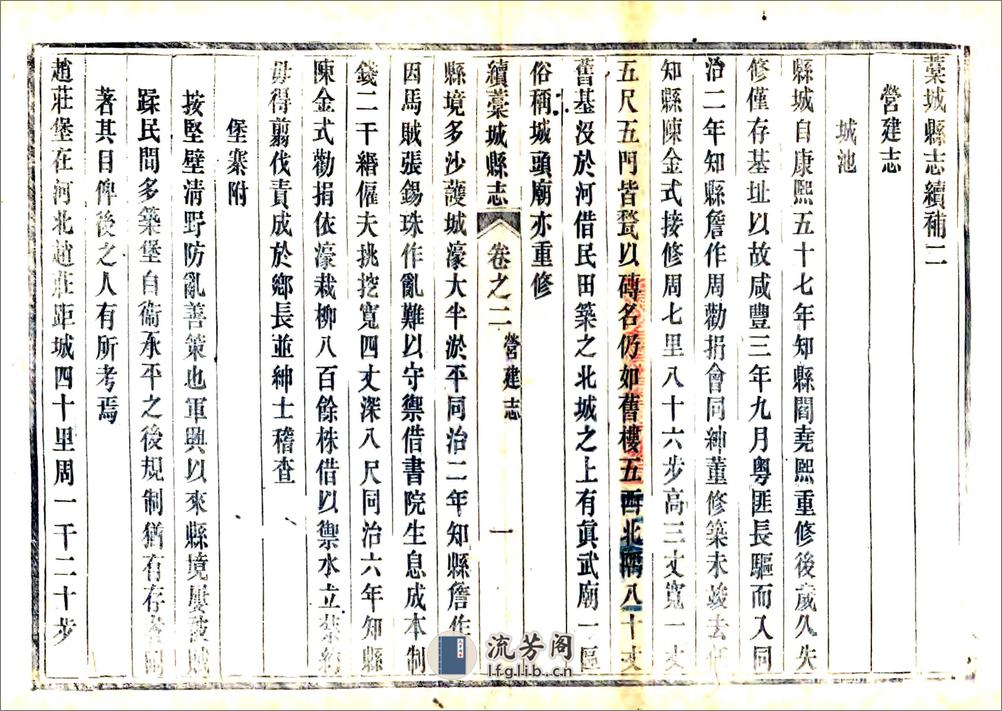 藁城縣志續補二
營建志
城池
縣城自康熙五十七年知縣閻堯熙重修後歲久失
修僅存基址以故咸豐三年九月粵匪長驅而入同
治二年知縣詹作周勸捐會同紳董修築未竣去任
知縣陳金式接修周七里八十六步高三丈寬一丈
五尺五門皆甃以磚名仍如舊樓五西北隅八十丈
舊基沒於河借民田築之北城之上有眞武廟一區
俗稱城頭廟亦重修
續藁城縣志 卷之二 營建志 一
縣境多沙護城濠大半淤平同治二年知縣詹作
因馬賊張錫珠作亂難以守禦借書院生息成本制
錢二千緡僱夫挑挖寬四丈深八尺同治六年知縣
陳金式勸捐依濠栽柳八百餘株借以禦水立案
毋得翦伐責成於鄉長並紳士稽查
堡寨附
按堅壁清野防亂善策也軍興以來縣境屢被賊
蹂民間多築堡自衞永平之後規制猶有存者
著其目俾後之人有所考焉
趙莊堡在河北趙莊距城四十里周一千二十步
流芳阁
lfglib.cn